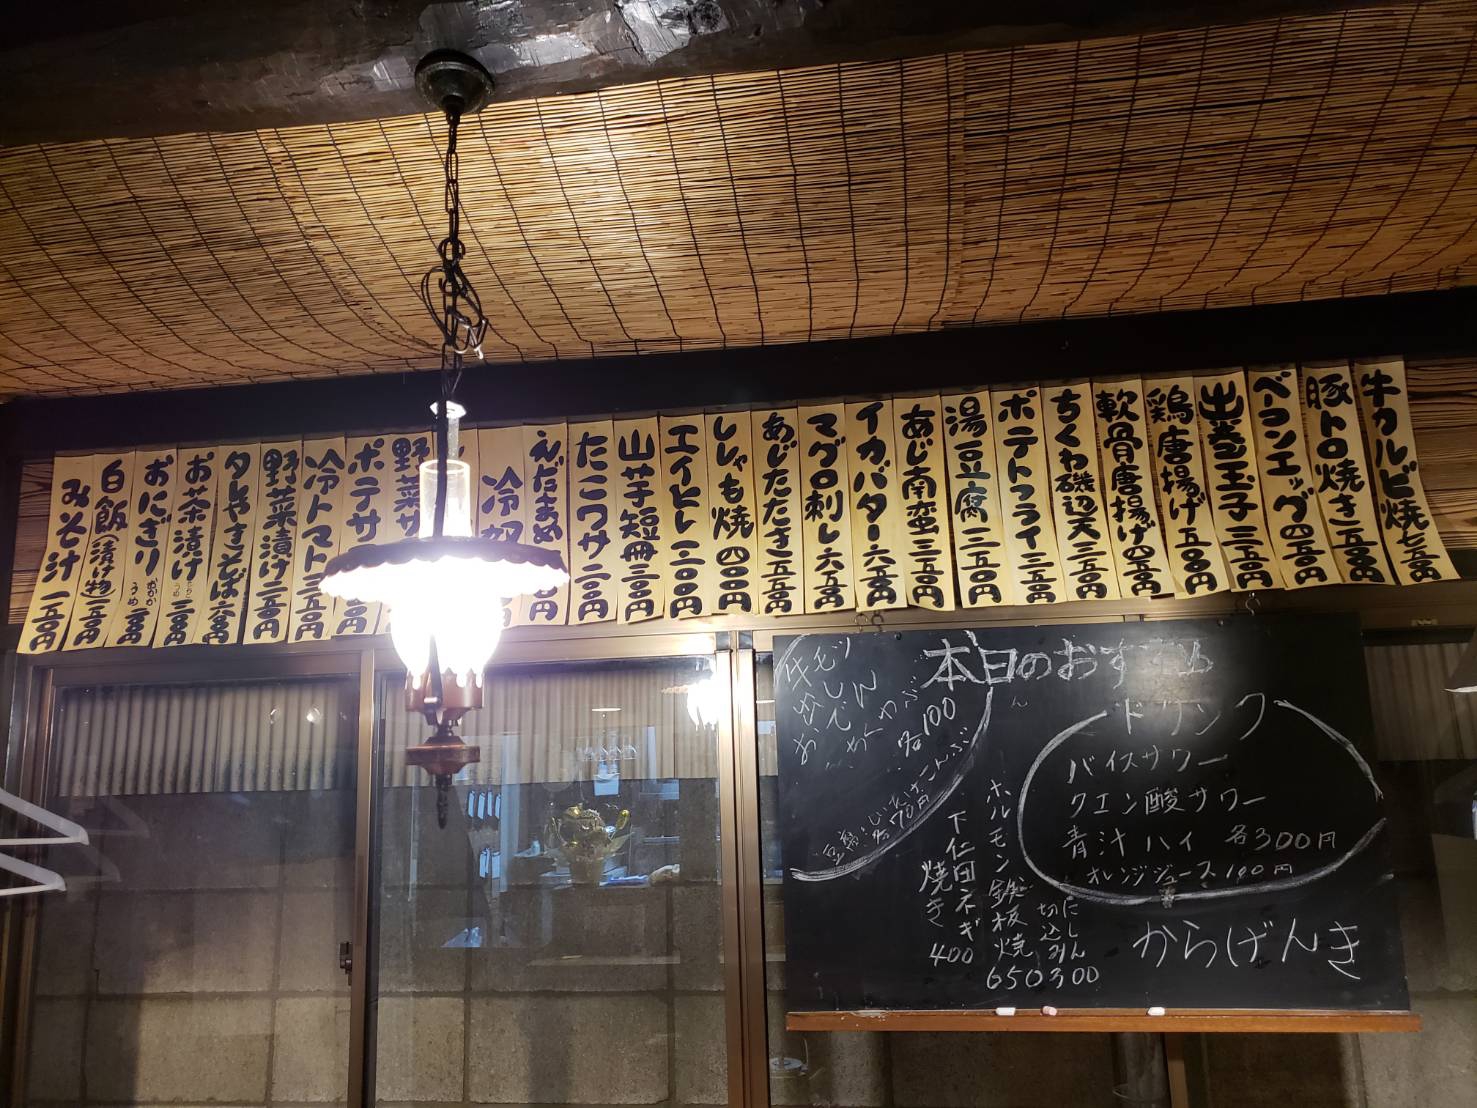 牛カルビ焼 七五〇円
豚トロ焼き 五五〇円
ベーコンエッグ 四五〇円
出巻玉子 三五〇円
鶏唐揚げ 五五〇円
軟骨唐揚げ 四五〇円
ちくわ磯辺天 三五〇円
ポテトフライ 三五〇円
湯豆腐 二五〇円
あじ南蛮 三五〇円
イカバター 六五〇円
マグロ刺し 六五〇円
あじたたき 五五〇円
ししゃも焼 四〇〇円
エイヒレ 三〇〇円
山芋短冊 三〇〇円
たこワサ 三〇〇円
えだまめ
冷奴
野菜サ
ポテサ
冷トマト 三五〇円
野菜漬け 二五〇円
タレやきそば 六〇〇円
お茶漬け
おにぎり おかか うめ
白飯(漬け物) 二〇〇円
みそ汁 一五〇円
本日のおすすめ
牛モツ
出し
おでん
ちくわぶ
各100
豆腐・しいたけ・こんぶ
各70円
ドリンク
バイスサワー
クエン酸サワー
青汁ハイ 各300円
オレンジジュース 100円
ホルモン鉄板焼 650
下仁田ネギ
焼き 400
切込
にしん
300
からげんき